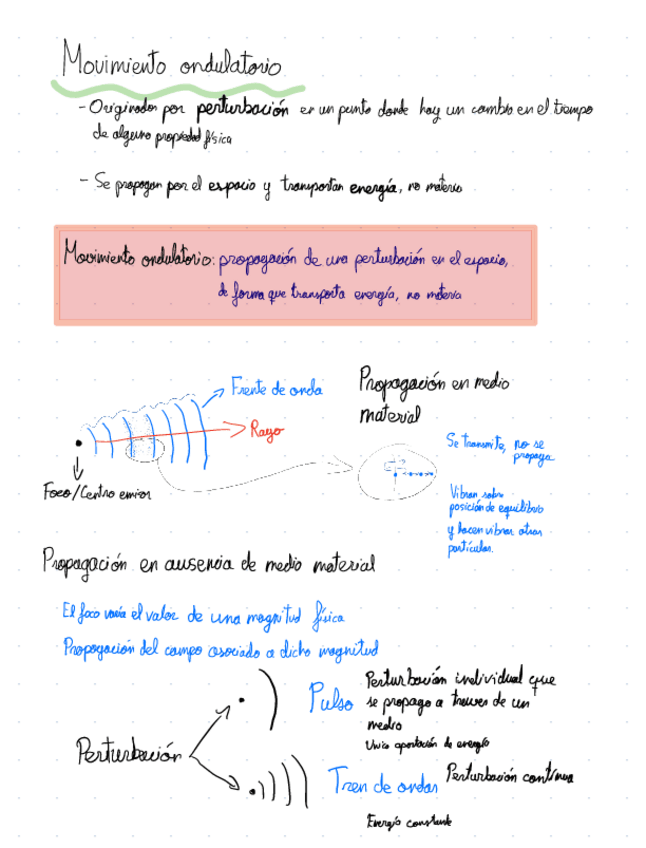 Movimiento ondulatorio
- Originados por perturbación en un punto donde hay un cambio en el tiempo
de alguna propiedad física
- Se propagan por el espacio y transportan energía, no materia
Movimiento ondulatorio: propagación de una perturbación en el espacio,
de forma que transporta energía, no materia
Frente de onda
Rayo
Foco/Centro emisor
Propagación en medio
material
Se transmite, no se
propaga
Vibran sobre
posición de equilibrio
y hacen vibrar otras
partículas.
Propagación en ausencia de medio material
El foco varía el valor de una magnitud física
Propagación del campo asociado a dicha magnitud
Perturbación
Pulso
Perturbación individual que
se propaga a traves de un
medio
Unica aportación de energía
Tren de ondas
Perturbación contínua
Energía constante